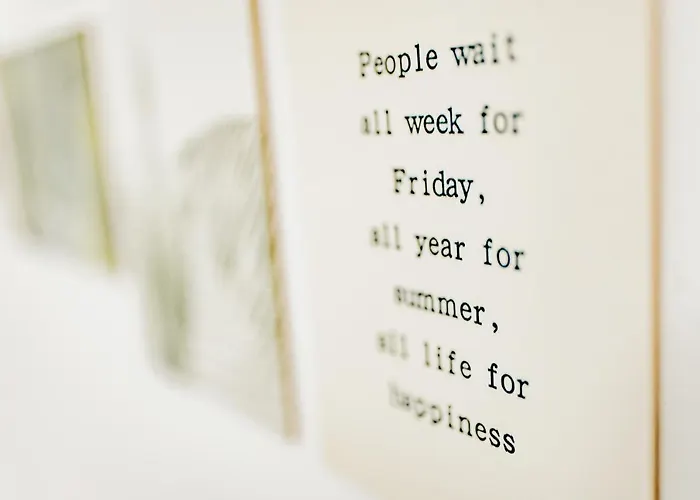 People wait
all week for
Friday,
all year for
summer,
all life for
happiness